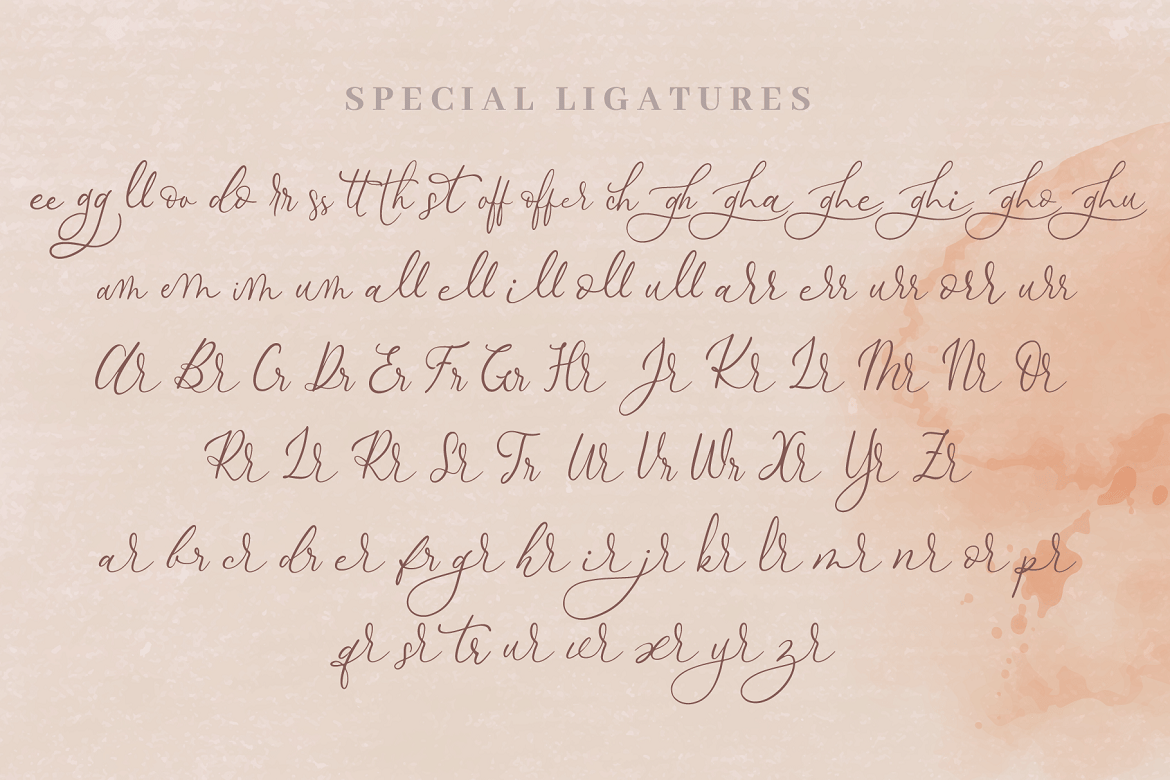 SPECIAL LIGATURES
ee gg ll ov do rr ss tt th st off offer ch gh gha ghe ghi gho ghu
am em im um all ell ill oll ull arr err urr orr urr
Ar Br Cr Dr Er Fr Gr Hr Jr Kr Lr Mr Nr Or
Rr Lr Rr Sr Tr Ur Vr Wr Xr Yr Zr
ar br cr dr er fr gr hr ir jr kr lr mr nr or pr
qr sr tr ur xr yr zr